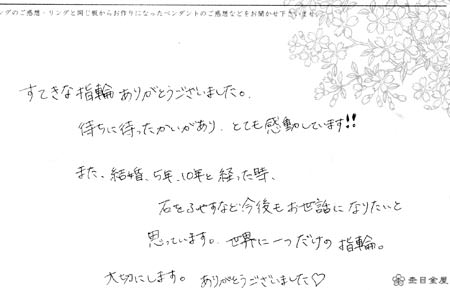 ングのご感想・リングと同じ板からお作りになったペンダントのご感想などをお聞かせ下さいませ。
すてきな指輪ありがとうございました。
待ちに待ったかいがあり、とても感動しています!!
また、結婚、5年、10年と経った時、
石をふやすなど今後もお世話になりたいと
思っています。世界に一つだけの指輪。
大切にします。ありがとうございました♡
杢目金屋